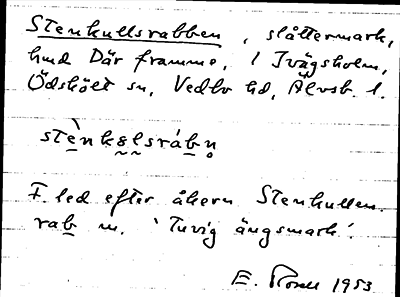 Stenkullsrabben, slåttermark,
hmd Där framme, 1 Tvägsholm,
Ödskölt sn, Vedbo hd, Älvsb. l.
stènkɞlsráb̥n̥
F. led efter åkern Stenkullen.
rab m. 'Tuvig ängsmark'.
E. 1953